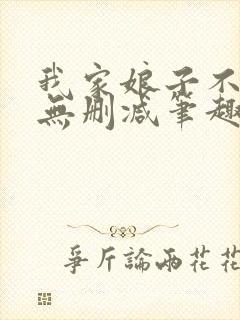 我家娘子不
無刪減筆趣
爭斤論兩花花